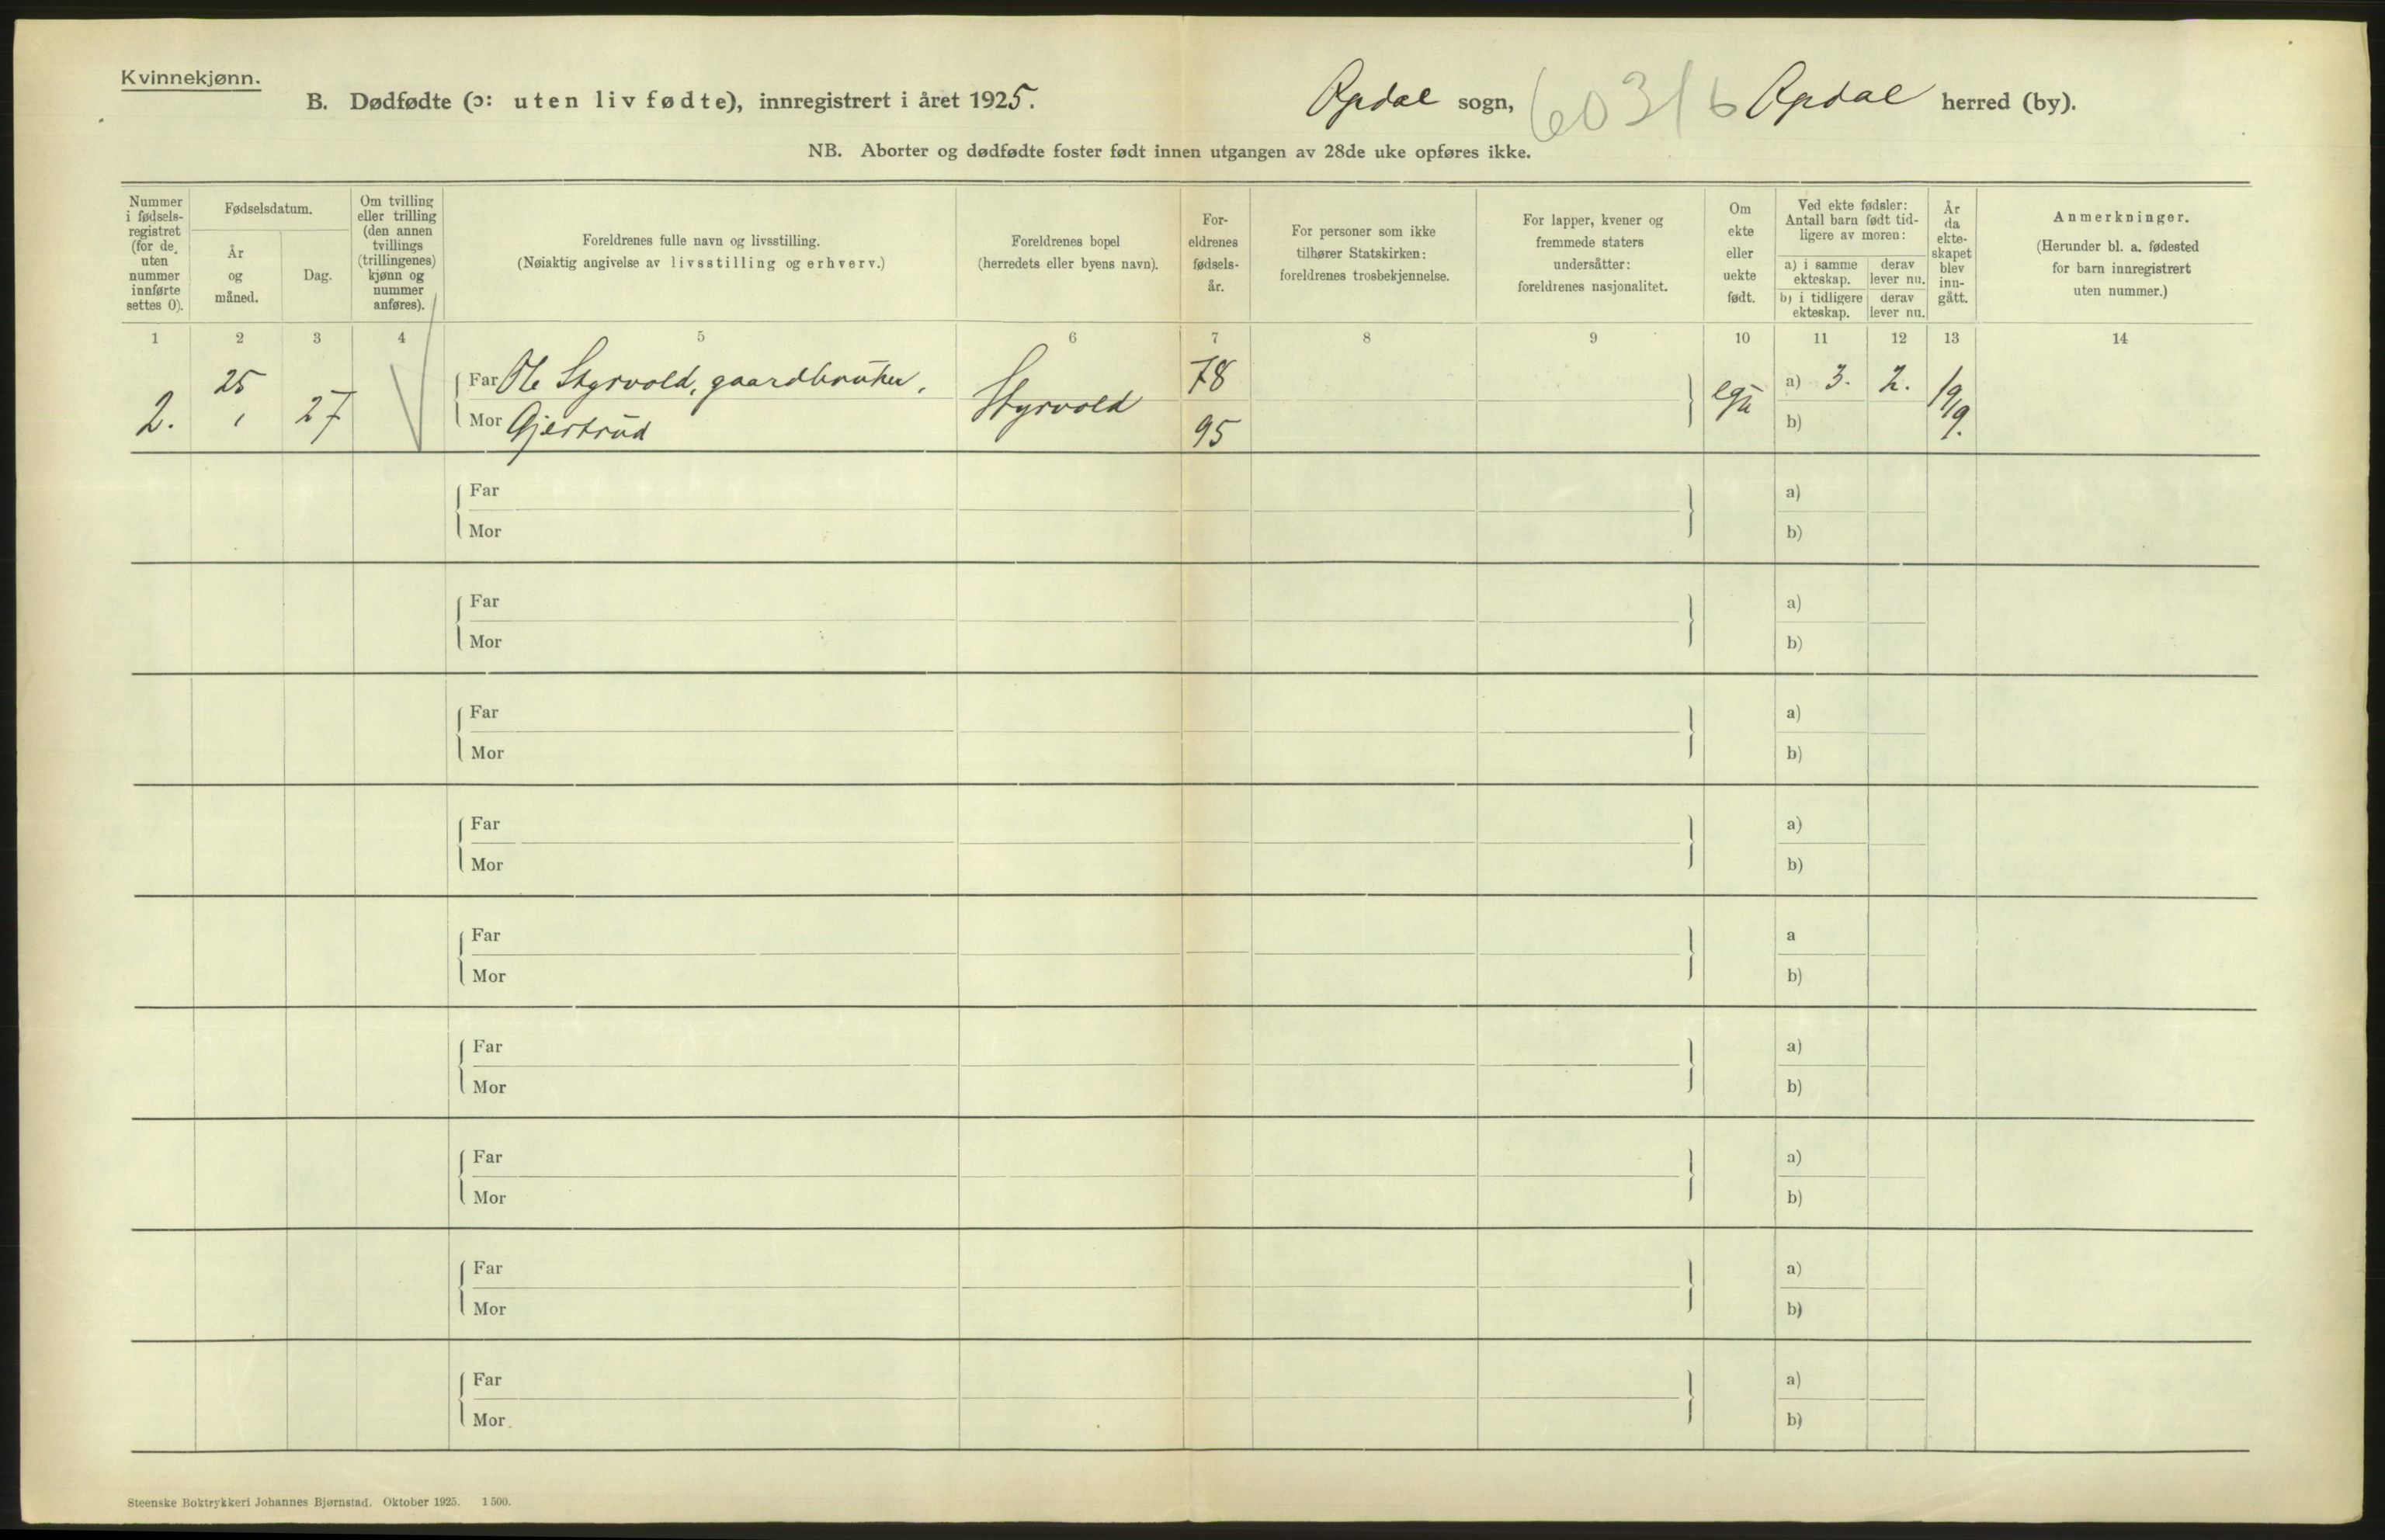 Kvinnekjønn.
B. Dødfødte (ɔ: uten liv fødte), innregistrert i året 1925. Opdal sogn, 6031b Opdal herred (by).
NB. Aborter og dødfødte foster født innen utgangen av 28de uke opføres ikke.
Nummer i fødsels-registret (for de uten nummer innførte settes 0).
Fødselsdatum.
År og måned.
Dag.
Om tvilling eller trilling (den annen tvillings (trillingenes) kjønn og nummer anføres).
Foreldrenes fulle navn og livsstilling.
(Nøiaktig angivelse av livsstilling og erhverv.)
Foreldrenes bopel
(herredets eller byens navn).
For-eldrenes fødsels-år.
For personer som ikke tilhører Statskirken: foreldrenes trosbekjennelse.
For lapper, kvener og fremmede staters undersåtter: foreldrenes nasjonalitet.
Om ekte eller uekte født.
Ved ekte fødsler: Antall barn født tid-ligere av moren:
a) i samme ekteskap. derav lever nu.
b) i tidligere ekteskap. derav lever nu.
År da ekte-skapet blev inn-gått.
Anmerkninger.
(Herunder bl. a. fødested for barn innregistrert uten nummer.)
1 2 3 4 5 6 7 8 9 10 11 12 13 14
2. 25 27 Far Ole Styrvold, gaardbruker. Styrvold 78 a) 3. 2. 1919.
Mor Gjertrud 95 b)
Far a)
Mor b)
Far a)
Mor b)
Far a)
Mor b)
Far a)
Mor b)
Far a
Mor b)
Far a)
Mor b)
Far a)
Mor b)
Far a)
Mor b)
Far a)
Mor b)
Steenske Boktrykkeri Johannes Bjørnstad. Oktober 1925. 1500.